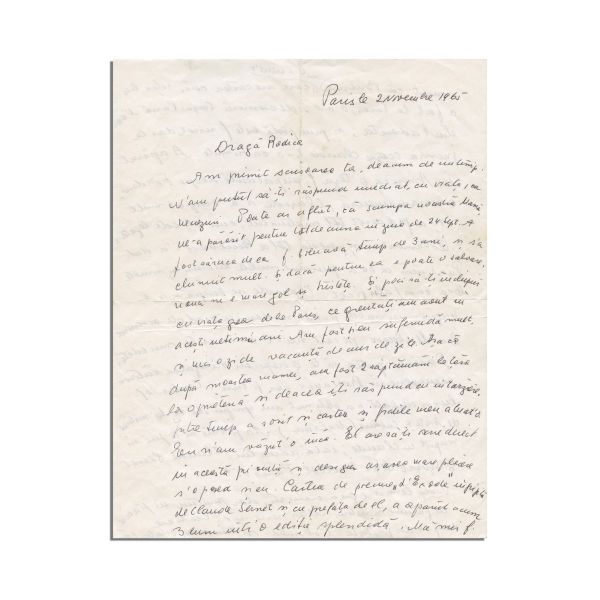 Paris le 2 Novembre 1965
Dragă Rodica
Am primit scrisoarea ta, de acum
N'am putut să-ți răspund imediat, cu viața, ca
Poate ai aflat, că scumpa noastră Mami,
ne-a părăsit pentru totdeauna în ziua de 24 Spt. A
fost săraca de ea f. bolnavă timp de 3 ani, și s'a
chinuit mult. Și dacă pentru ea e poate o salvare,
nouă ni e mare gol și tristețe. Și poți să-ți închipui
cu viața grea de la Paris, ce greutăți am avut în
acești ani. Am fost și eu suferindă mult,
și nici o zi de vacanță de ani de zile. Așa că
după moartea mamei, am fost 2 săptămâni la țară
la o prietenă și de aceea îți răspund cu întârziere.
Între timp a sosit și cartea și fratele meu
Eu n'am văzut-o încă. El are să-ți scrie direct
în această privință și desigur că avea mare plăcere
s'o pot și eu. Cartea de
de Claude Sernet și cu prefața de el, a apărut acum
3 luni într'o ediție splendidă. Mă mai f.